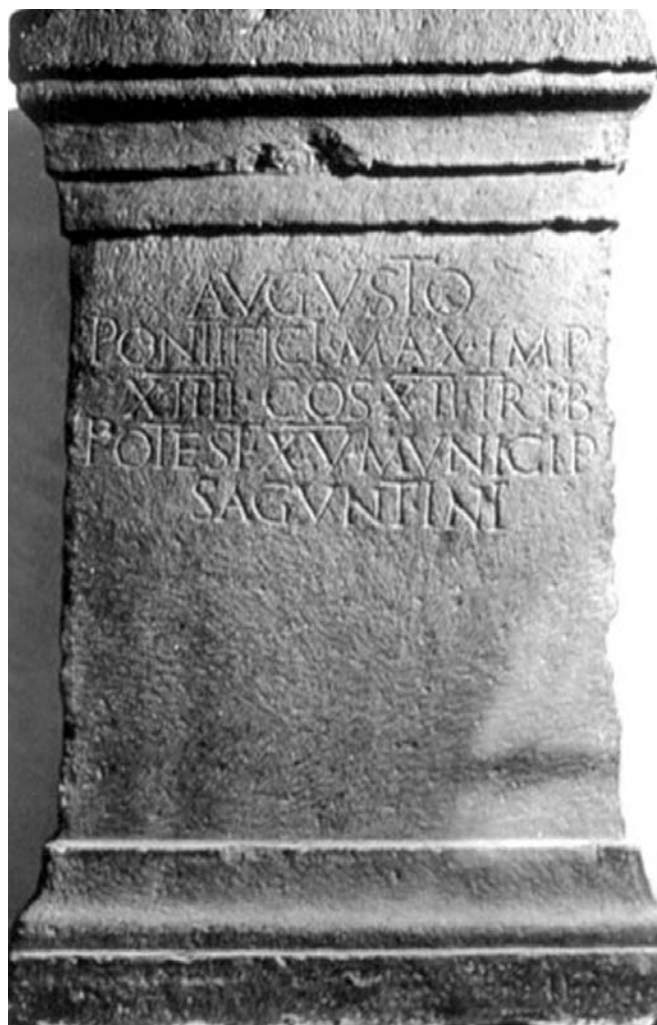 AVGVSTO
PONTIFICI·MAX·IMP
XIIII·COS·XII·TRIB
POTEST·XV·MVNICIP
SAGVNTINI